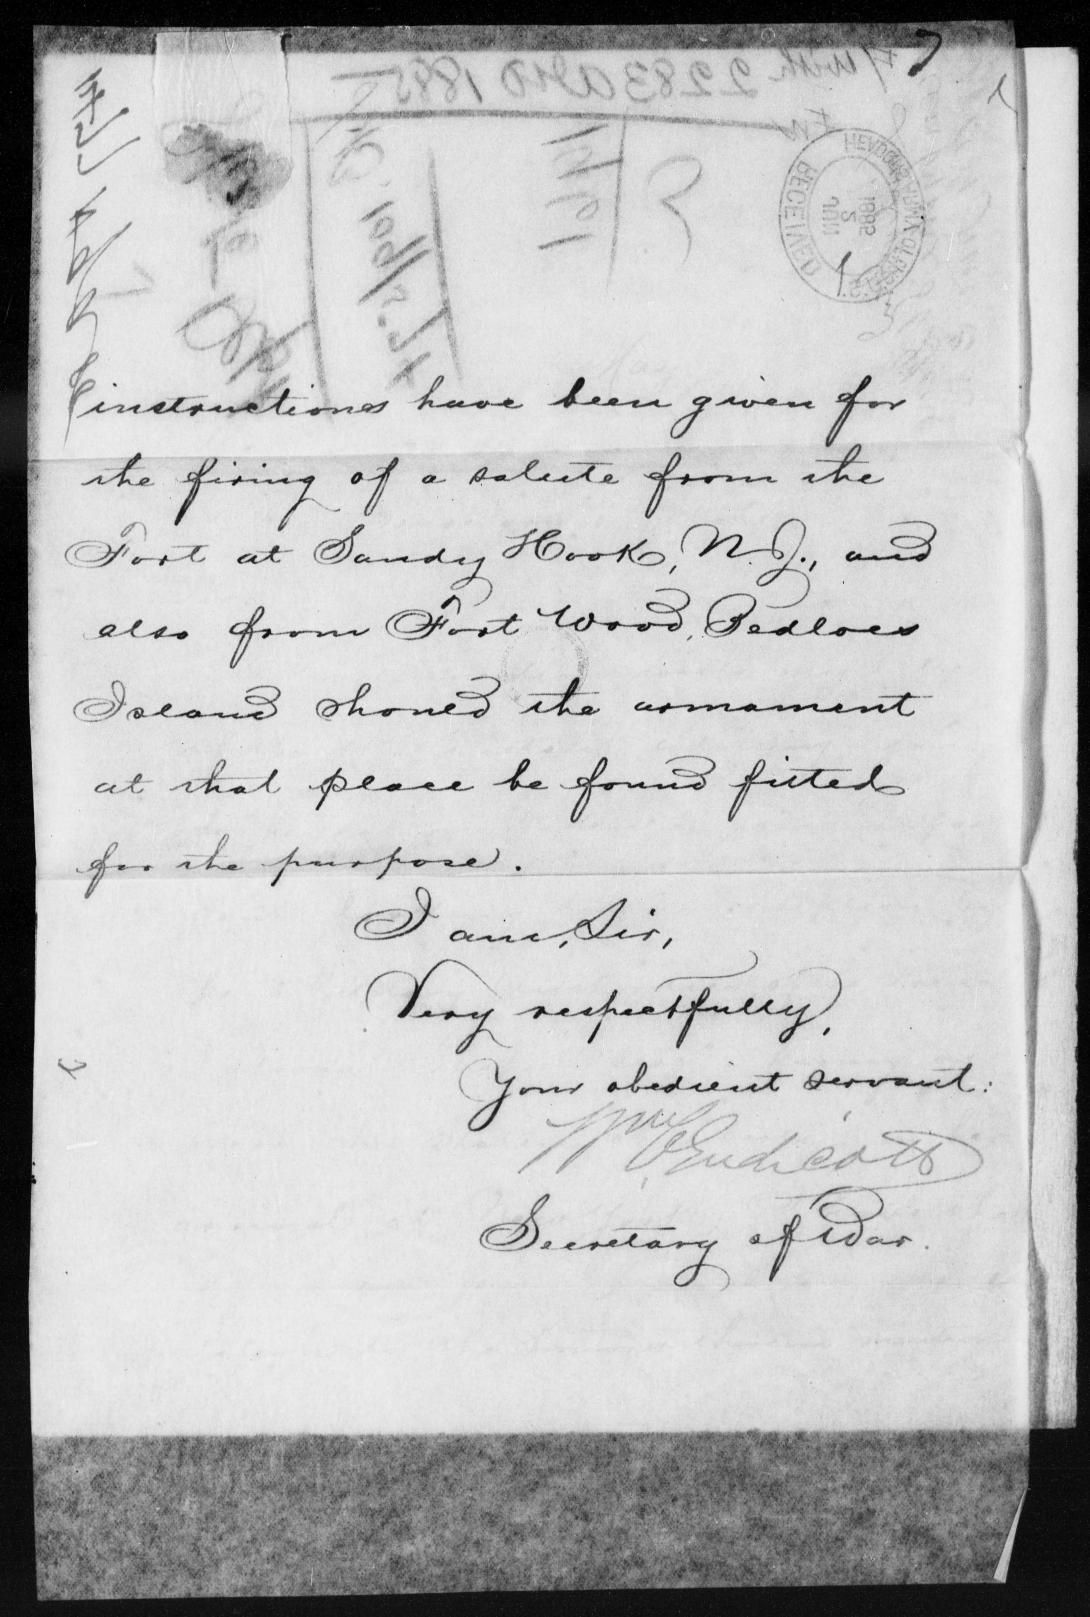 7
instructions have been given for
the firing of a salute from the
Fort at Sandy Hook, N. J., and
also from Fort Wood, Bedloes
Island should the armament
at that place be found fitted
for the purpose.
I am, Sir,
Very respectfully,
Your obedient servant:
Wm C Endicott
Secretary of War.